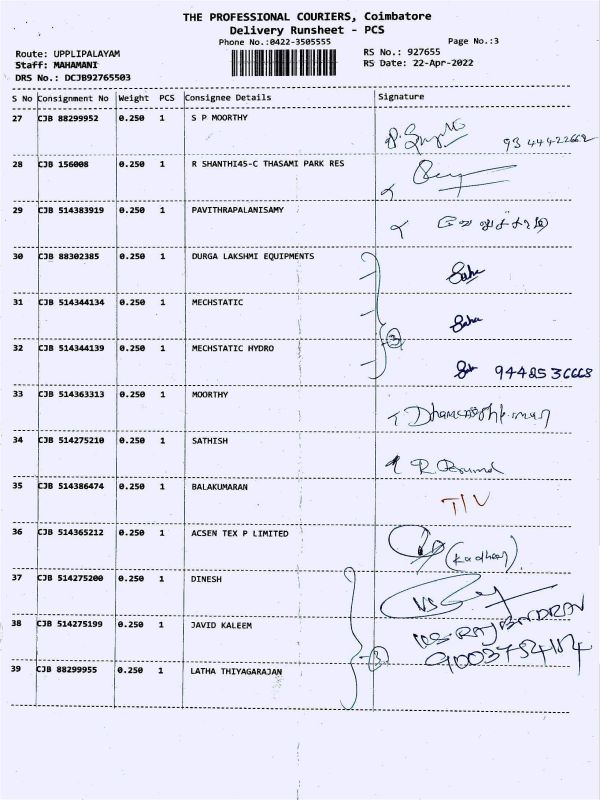 THE PROFESSIONAL COURIERS, Coimbatore
Delivery Runsheet - PCS
Phone No.:0422-3505555
Page No.:3
Route: UPPLIPALAYAM
RS No.: 927655
Staff: MAHAMANI
RS Date: 22-Apr-2022
DRS No.: DCJB92765503
S No Consignment No Weight PCS Consignee Details Signature
27 CJB 88299952 0.250 1 S P MOORTHY
28 CJB 156008 0.250 1 R SHANTHI45-C THASAMI PARK RES
29 CJB 514383919 0.250 1 PAVITHRAPALANISAMY
30 CJB 88302385 0.250 1 DURGA LAKSHMI EQUIPMENTS
31 CJB 514344134 0.250 1 MECHSTATIC
3
32 CJB 514344139 0.250 1 MECHSTATIC HYDRO 9442536668
33 CJB 514363313 0.250 1 MOORTHY
34 CJB 514275210 0.250 1 SATHISH
35 CJB 514386474 0.250 1 BALAKUMARAN T/V
36 CJB 514365212 0.250 1 ACSEN TEX P LIMITED
37 CJB 514275200 0.250 1 DINESH
38 CJB 514275199 0.250 1 JAVID KALEEM
3
39 CJB 88299955 0.250 1 LATHA THIYAGARAJAN